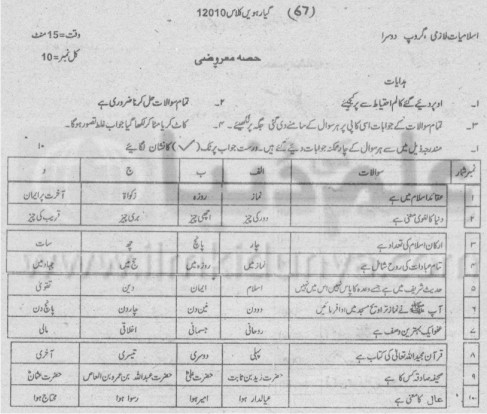 (67) گیارہویں کلاس 12010
اسلامیات لازمی، گروپ دوسرا
وقت=15 منٹ
حصہ معروضی
کل نمبر=10
ہدایات
۱۔ اوپر دیئے گئے کالم احتیاط سے پر کیجئے ۲۔ تمام سوالات حل کرنا ضروری ہے
۳۔ تمام سوالات کے جوابات اسی کاپی پر ہر سوال کے سامنے دی گئی جگہ پر لکھیئے۔ ۴۔ کاٹ کر یا مٹا کر لکھا گیا جواب غلط تصور ہوگا۔
۱۔ مندرجہ ذیل میں سے ہر سوال کے چار ممکنہ جوابات دیئے گئے ہیں۔ درست جواب پر ٹک (✓) کا نشان لگائیے ۱۰
نمبر شمار سوالات الف ب ج د
۱ عقائد اسلام میں ہے نماز روزہ زکوٰۃ آخرت پر ایمان
۲ دنیا کا لغوی معنی ہے دور کی چیز اچھی چیز بری چیز قریب کی چیز
۳ ارکان اسلام کی تعداد ہے چار پانچ چھ سات
۴ تمام عبادات کی روح شامل ہے نماز میں روزہ میں حج میں جہاد میں
۵ حدیث شریف میں ہے جسے وعدہ کا پاس نہیں اس میں نہیں اسلام ایمان دین تقویٰ
۶ آپ ﷺ نے نماز تراویح مسجد میں ادا فرمائیں دو دن تین دن چار دن پانچ دن
۷ عفو ایک بہترین وصف ہے روحانی جسمانی اخلاقی مالی
۸ قرآن مجید اللہ تعالیٰ کی کتاب ہے پہلی دوسری تیسری آخری
۹ صحیفہ صادقہ کس کا ہے حضرت زید بن ثابت حضرت علیؓ حضرت عبداللہ بن عمرو بن العاص حضرت عثمانؓ
۱۰ عال کا معنی ہے عیالدار ہوا امیر ہوا رسوا ہوا محتاج ہوا